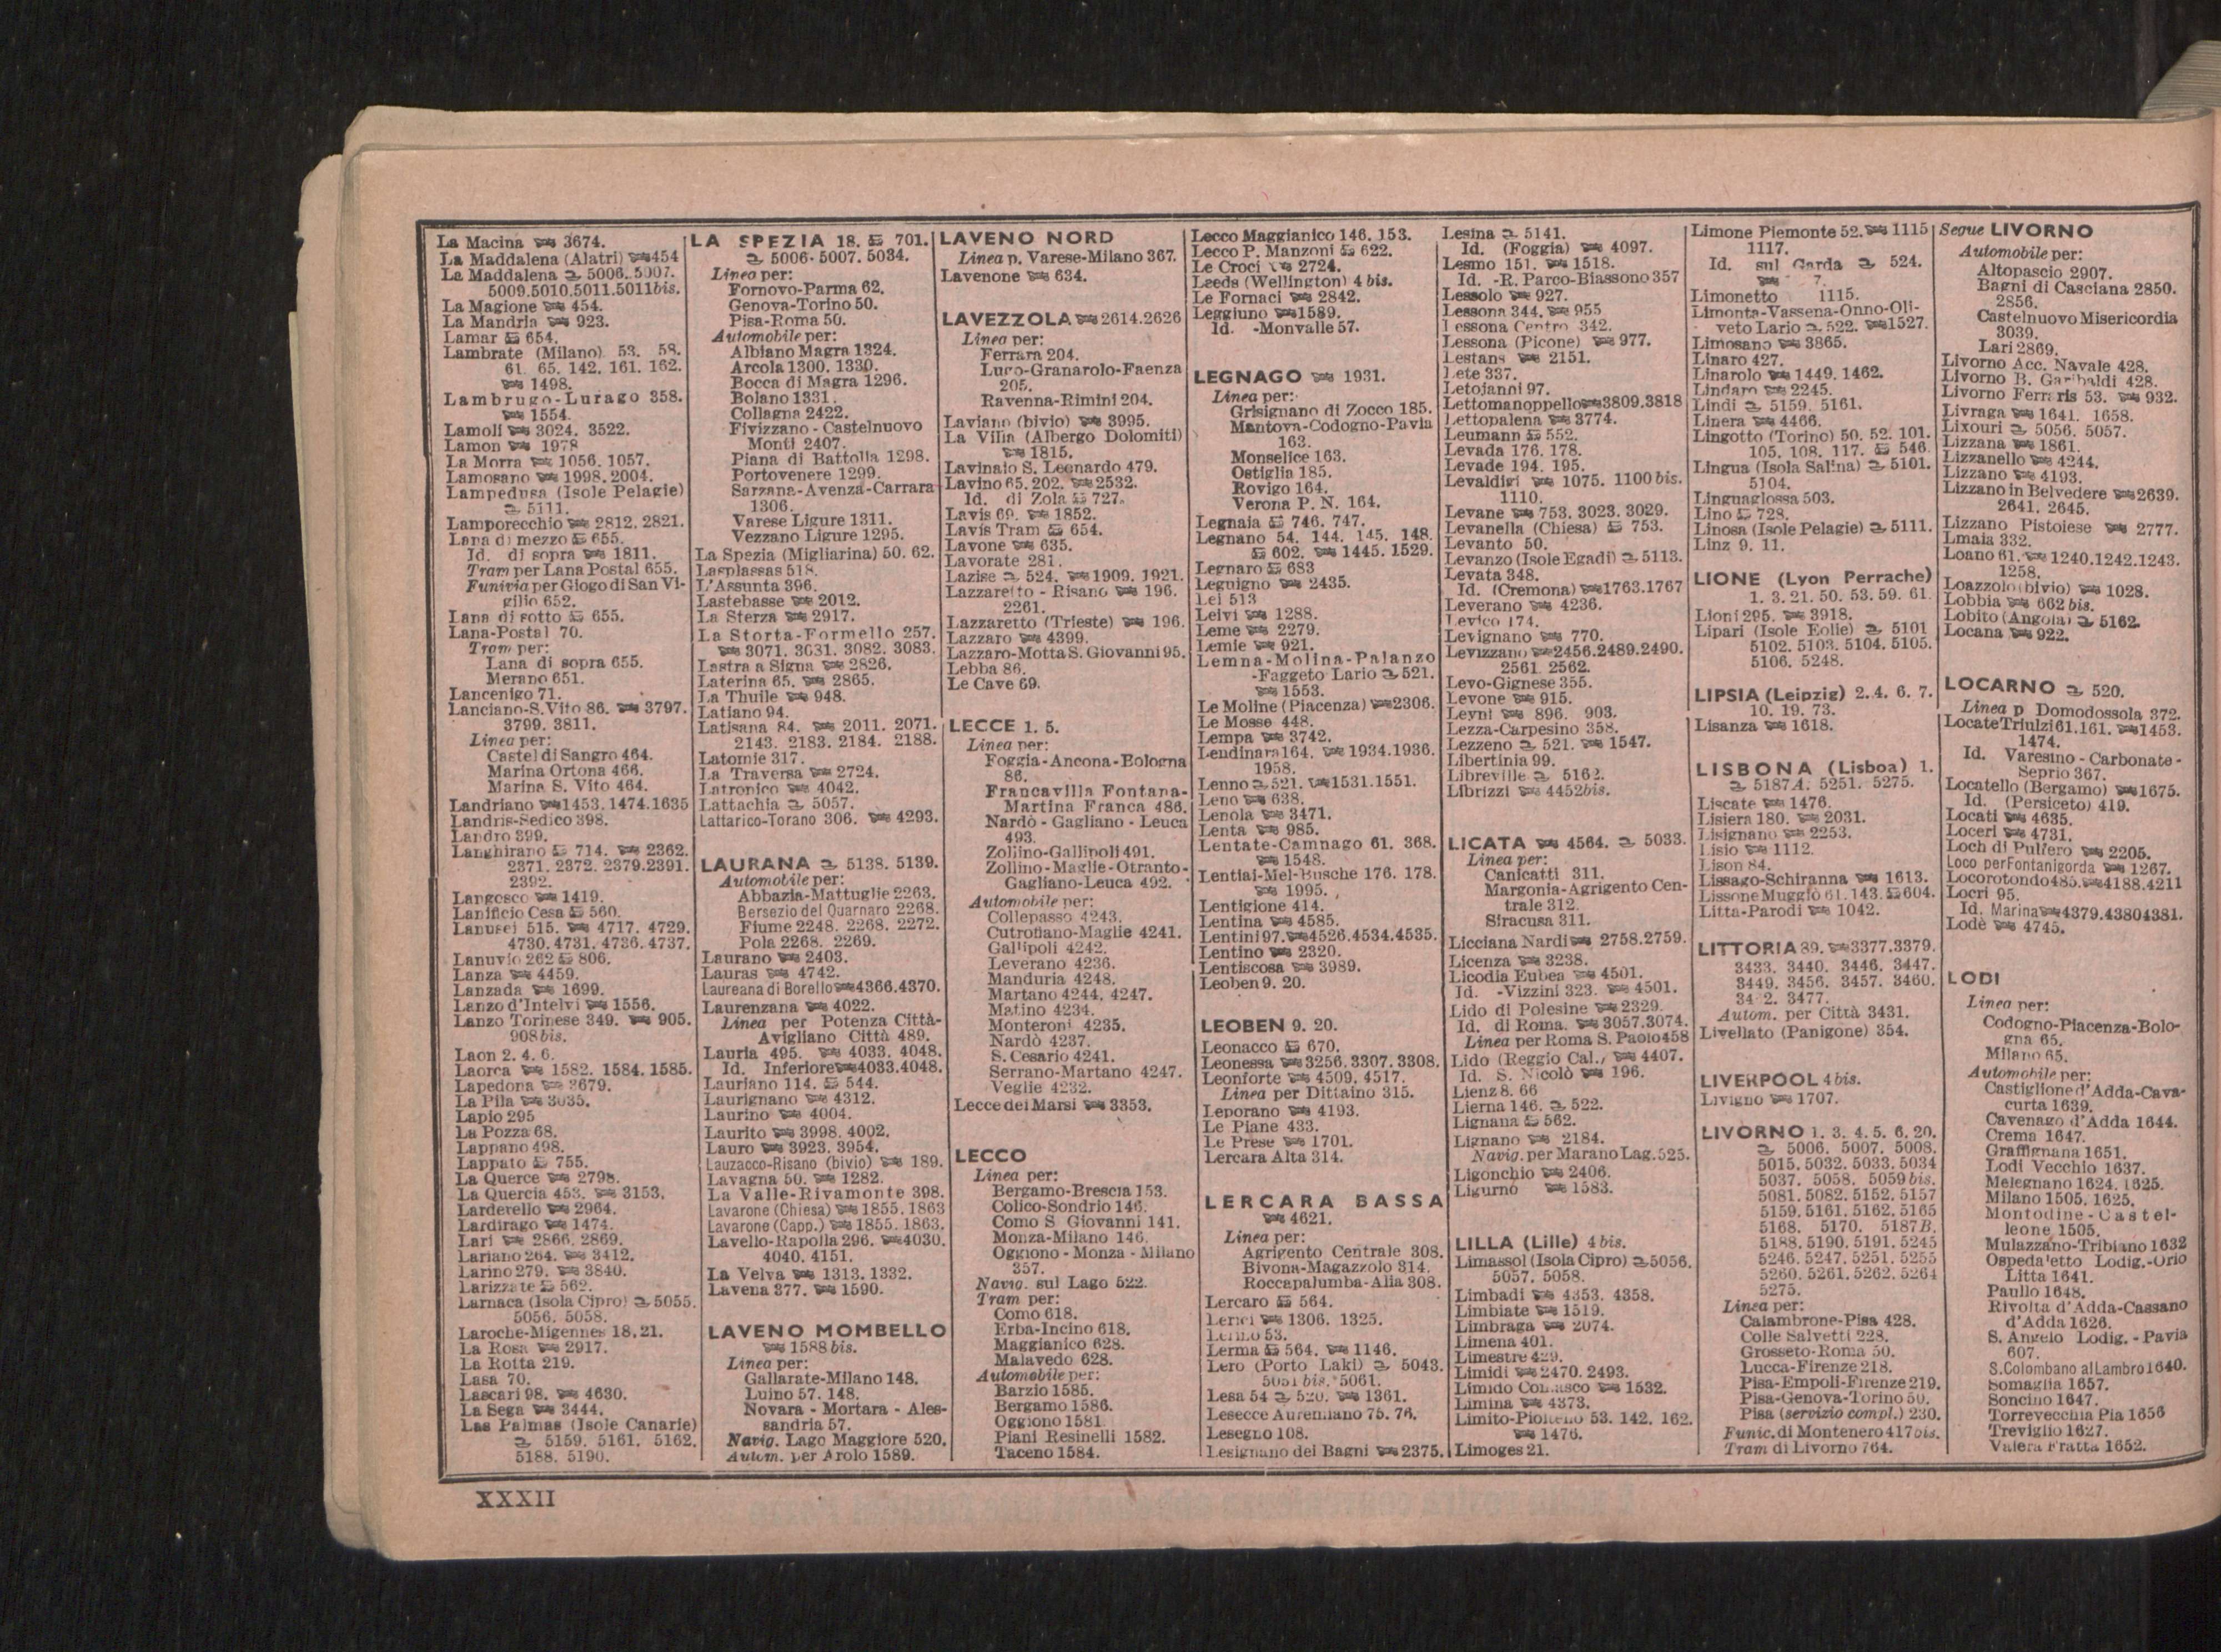 La Macina 3674.
La Maddalena (Alatri) 454
La Maddalena 5006. 5007.
5009.5010.5011.5011bis.
La Magione 454.
La Mandria 923.
Lamar 654.
Lambrate (Milano) 53. 58.
61. 65. 142. 161. 162.
1498.
Lambrugo-Lurago 358.
1554.
Lamoli 3024. 3522.
Lamon 1978
La Morra 1056. 1057.
Lamosano 1998. 2004.
Lampedusa (Isole Pelagie)
5111.
Lamporecchio 2812. 2821.
Lana di mezzo 655.
Id. di sopra 1811.
Tram per Lana Postal 655.
Funivia per Giogo di San Vi-
gilio 652.
Lana di sotto 655.
Lana-Postal 70.
Tram per:
Lana di sopra 655.
Merano 651.
Lancenigo 71.
Lanciano-S. Vito 86. 3797.
3799. 3811.
Linea per:
Castel di Sangro 464.
Marina Ortona 466.
Marina S. Vito 464.
Landriano 1453. 1474.1635
Landris-Sedico 398.
Landro 399.
Langhirano 714. 2362.
2371. 2372. 2379.2391.
2392.
Langosco 1419.
Lanificio Cesa 560.
Lanusei 515. 4717. 4729.
4730. 4731. 4736. 4737.
Lanuvio 262 806.
Lanza 4459.
Lanzada 1699.
Lanzo d'Intelvi 1556.
Lanzo Torinese 349. 905.
908bis.
Laon 2. 4. 6.
Laorca 1582. 1584. 1585.
Lapedona 3679.
La Pila 3035.
Lapio 295
La Pozza 68.
Lappano 498.
Lappato 755.
La Querce 2798.
La Quercia 453. 3153.
Larderello 2964.
Lardirago 1474.
Lari 2866. 2869.
Lariano 264. 3412.
Larino 279. 3840.
Larizzate 562.
Larnaca (Isola Cipro) 5055.
5056. 5058.
Laroche-Migennes 18. 21.
La Rosa 2917.
La Rotta 219.
Lasa 70.
Lascari 98. 4630.
La Sega 3444.
Las Palmas (Isole Canarie)
5159. 5161. 5162.
5188. 5190.
LA SPEZIA 18. 701.
5006. 5007. 5034.
Linea per:
Fornovo-Parma 62.
Genova-Torino 50.
Pisa-Roma 50.
Automobile per:
Albiano Magra 1324.
Arcola 1300. 1330.
Bocca di Magra 1296.
Bolano 1331.
Collagna 2422.
Fivizzano - Castelnuovo
Monti 2407.
Piana di Battolla 1298.
Portovenere 1299.
Sarzana-Avenza-Carrara
1306.
Varese Ligure 1311.
Vezzano Ligure 1295.
La Spezia (Migliarina) 50. 62.
Lasplassas 518.
L'Assunta 396.
Lastebasse 2012.
La Sterza 2917.
La Storta-Formello 257.
3071. 3031. 3082. 3083.
Lastra a Signa 2826.
Laterina 65. 2865.
La Thuile 948.
Latiano 94.
Latisana 84. 2011. 2071.
2143. 2183. 2184. 2188.
Latomie 317.
La Traversa 2724.
Latronico 4042.
Lattachia 5057.
Lattarico-Torano 306. 4293.
LAURANA 5138. 5139.
Automobile per:
Abbazia-Mattuglie 2263.
Bersezio del Quarnaro 2268.
Fiume 2248. 2268. 2272.
Pola 2268. 2269.
Laurano 2403.
Lauras 4742.
Laureana di Borello 4366.4370.
Laurenzana 4022.
Linea per Potenza Città-
Avigliano Città 489.
Lauria 495. 4033. 4048.
Id. Inferiore 4033.4048.
Lauriano 114. 544.
Laurignano 4312.
Laurino 4004.
Laurito 3998. 4002.
Lauro 3923. 3954.
Lauzacco-Risano (bivio) 189.
Lavagna 50. 1282.
La Valle-Rivamonte 398.
Lavarone (Chiesa) 1855. 1863
Lavarone (Capp.) 1855. 1863.
Lavello-Rapolla 296. 4030.
4040. 4151.
La Velva 1313. 1332.
Lavena 377. 1590.
LAVENO MOMBELLO
1588bis.
Linea per:
Gallarate-Milano 148.
Luino 57. 148.
Novara - Mortara - Ales-
sandria 57.
Navig. Lago Maggiore 520.
Autom. per Arolo 1589.
LAVENO NORD
Linea p. Varese-Milano 367.
Lavenone 634.
LAVEZZOLA 2614.2626
Linea per:
Ferrara 204.
Lugo-Granarolo-Faenza
205.
Ravenna-Rimini 204.
Laviano (bivio) 3995.
La Villa (Albergo Dolomiti)
1815.
Lavinaio S. Leonardo 479.
Lavino 65. 202. 2532.
Id. di Zola 727.
Lavis 69. 1852.
Lavis Tram 654.
Lavone 635.
Lavorate 281.
Lazise 524. 1909. 1921.
Lazzaretto - Risano 196.
2261.
Lazzaretto (Trieste) 196.
Lazzaro 4399.
Lazzaro-Motta S. Giovanni 95.
Lebba 86.
Le Cave 69.
LECCE 1. 5.
Linea per:
Foggia-Ancona-Bologna
86.
Francavilla Fontana-
Martina Franca 486.
Nardò - Gagliano - Leuca
493.
Zollino-Gallipoli 491.
Zollino-Maglie-Otranto-
Gagliano-Leuca 492.
Automobile per:
Collepasso 4243.
Cutrofiano-Maglie 4241.
Gallipoli 4242.
Leverano 4236.
Manduria 4248.
Martano 4244. 4247.
Matino 4234.
Monteroni 4235.
Nardò 4237.
S. Cesario 4241.
Serrano-Martano 4247.
Veglie 4232.
Lecce dei Marsi 3353.
LECCO
Linea per:
Bergamo-Brescia 153.
Colico-Sondrio 146.
Como S Giovanni 141.
Monza-Milano 146.
Oggiono - Monza - Milano
357.
Navig. sul Lago 522.
Tram per:
Como 618.
Erba-Incino 618.
Maggianico 628.
Malavedo 628.
Automobile per:
Barzio 1585.
Bergamo 1586.
Oggiono 1581.
Piani Resinelli 1582.
Taceno 1584.
Lecco Maggianico 146. 153.
Lecco P. Manzoni 622.
Le Croci 2724.
Leeds (Wellington) 4 bis.
Le Fornaci 2842.
Leggiuno 1589.
Id. -Monvalle 57.
LEGNAGO 1931.
Linea per:
Grisignano di Zocco 185.
Mantova-Codogno-Pavia
163.
Monselice 163.
Ostiglia 185.
Rovigo 164.
Verona P. N. 164.
Legnaia 746. 747.
Legnano 54. 144. 145. 148.
602. 1445. 1529.
Legnaro 683
Legnigno 2435.
Lei 513
Leivi 1288.
Leme 2279.
Lemie 921.
Lemna-Molina-Palanzo
-Faggeto Lario 521.
1553.
Le Moline (Piacenza) 2306.
Le Mosse 448.
Lempa 3742.
Lendinara 164. 1934.1936.
1958.
Lenno 521. 1531.1551.
Leno 638.
Lenola 3471.
Lenta 985.
Lentate-Camnago 61. 368.
1548.
Lentiai-Mel-Busche 176. 178.
1995.
Lentigione 414.
Lentina 4585.
Lentini 97. 4526.4534.4535.
Lentino 2320.
Lentiscosa 3989.
Leoben 9. 20.
LEOBEN 9. 20.
Leonacco 670.
Leonessa 3256. 3307. 3308.
Leonforte 4509. 4517.
Linea per Dittaino 315.
Leporano 4193.
Le Piane 433.
Le Prese 1701.
Lercara Alta 314.
LERCARA BASSA
4621.
Linea per:
Agrigento Centrale 308.
Bivona-Magazzolo 314.
Roccapalumba-Alia 308.
Lercaro 564.
Lerici 1306. 1325.
53.
Lerma 564. 1146.
Lero (Porto Laki) 5043.
5051 bis. 5061.
Lesa 54 520. 1361.
Lesecce Auremiano 75. 76.
Lesegno 108.
Lesignano dei Bagni 2375.
Lesina 5141.
Id. (Foggia) 4097.
Lesmo 151. 1518.
Id. -R. Parco-Biassono 357
Lessolo 927.
Lessona 344. 955
Lessona Centro 342.
Lessona (Picone) 977.
Lestans 2151.
Lete 337.
Letojanni 97.
Lettomanoppello 3809.3818
Lettopalena 3774.
Leumann 552.
Levada 176. 178.
Levade 194. 195.
Levaldigi 1075. 1100 bis.
1110.
Levane 753. 3023. 3029.
Levanella (Chiesa) 753.
Levanto 50.
Levanzo (Isole Egadi) 5113.
Levata 348.
Id. (Cremona) 1763.1767
Leverano 4236.
Levico 174.
Levignano 770.
Levizzano 2456.2489.2490.
2561. 2562.
Levo-Gignese 355.
Levone 915.
Leynì 896. 903.
Lezza-Carpesino 358.
Lezzeno 521. 1547.
Libertinia 99.
Libreville 5162.
Librizzi 4452bis.
LICATA 4564. 5033.
Linea per:
Canicatti 311.
Margonia-Agrigento Cen-
trale 312.
Siracusa 311.
Licciana Nardi 2758.2759.
Licenza 3238.
Licodia Eubea 4501.
Id. -Vizzini 323. 4501.
Lido di Polesine 2329.
Id. di Roma. 3057.3074.
Linea per Roma S. Paolo 458
Lido (Reggio Cal.) 4407.
Id. S. Nicolò 196.
Lienz 8. 66
Lierna 146. 522.
Lignana 562.
Lignano 2184.
Navig. per Marano Lag. 525.
Ligonchio 2406.
Ligurno 1583.
LILLA (Lille) 4 bis.
Limassol (Isola Cipro) 5056.
5057. 5058.
Limbadi 4353. 4358.
Limbiate 1519.
Limbraga 2074.
Limena 401.
Limestre 429.
Limidi 2470. 2493.
Limido Comasco 1532.
Limina 4373.
Limito-Pioltello 53. 142. 162.
1476.
Limoges 21.
Limone Piemonte 52. 1115
1117.
Id. sul Garda 524.
7.
Limonetto 1115.
Limonta-Vassena-Onno-Oli-
veto Lario 522. 1527.
Limosano 3865.
Linaro 427.
Linarolo 1449. 1462.
Lindaro 2245.
Lindi 5159. 5161.
Linera 4466.
Lingotto (Torino) 50. 52. 101.
105. 108. 117. 546.
Lingua (Isola Salina) 5101.
5104.
Linguaglossa 503.
Lino 728.
Linosa (Isole Pelagie) 5111.
Linz 9. 11.
LIONE (Lyon Perrache)
1. 3. 21. 50. 53. 59. 61.
Lioni 295. 3918.
Lipari (Isole Eolie) 5101
5102. 5103. 5104. 5105.
5106. 5248.
LIPSIA (Leipzig) 2. 4. 6. 7.
10. 19. 73.
Lisanza 1618.
LISBONA (Lisboa) 1.
5187A. 5251. 5275.
Liscate 1476.
Lisiera 180. 2031.
Lisignano 2253.
Lisio 1112.
Lison 84.
Lissago-Schiranna 1613.
Lissone Muggiò 61. 143. 604.
Litta-Parodi 1042.
LITTORIA 89. 3377.3379.
3433. 3440. 3446. 3447.
3449. 3456. 3457. 3460.
34 2. 3477.
Autom. per Città 3431.
Livellato (Panigone) 354.
LIVERPOOL 4bis.
Livigno 1707.
LIVORNO 1. 3. 4. 5. 6. 20.
5006. 5007. 5008.
5015. 5032. 5033. 5034
5037. 5058. 5059bis.
5081. 5082. 5152. 5157
5159. 5161. 5162. 5165
5168. 5170. 5187B.
5188. 5190. 5191. 5245
5246. 5247. 5251. 5255
5260. 5261. 5262. 5264
5275.
Linea per:
Calambrone-Pisa 428.
Colle Salvetti 228.
Grosseto-Roma 50.
Lucca-Firenze 218.
Pisa-Empoli-Firenze 219.
Pisa-Genova-Torino 50.
Pisa (servizio compl.) 230.
Funic. di Montenero 417bis.
Tram di Livorno 764.
Segue LIVORNO
Automobile per:
Altopascio 2907.
Bagni di Casciana 2850.
2856.
Castelnuovo Misericordia
3039.
Lari 2869.
Livorno Acc. Navale 428.
Livorno B. Garibaldi 428.
Livorno Ferraris 53. 932.
Livraga 1641. 1658.
Lixouri 5056. 5057.
Lizzana 1861.
Lizzanello 4244.
Lizzano 4193.
Lizzano in Belvedere 2639.
2641. 2645.
Lizzano Pistoiese 2777.
Lmaia 332.
Loano 61. 1240.1242.1243.
1258.
Loazzolo (bivio) 1028.
Lobbia 662 bis.
Lobito (Angola) 5162.
Locana 922.
LOCARNO 520.
Linea p Domodossola 372.
Locate Triulzi 61.161. 1453.
1474.
Id. Varesino - Carbonate -
Seprio 367.
Locatello (Bergamo) 1675.
Id. (Persiceto) 419.
Locati 4635.
Loceri 4731.
Loch di Pulfero 2205.
Loco per Fontanigorda 1267.
Locorotondo 485. 4188.4211
Locri 95.
Id. Marina 4379.43804381.
Lodè 4745.
LODI
Linea per:
Codogno-Piacenza-Bolo-
gna 65.
Milano 65.
Automobile per:
Castiglione d'Adda-Cava-
curta 1639.
Cavenago d'Adda 1644.
Crema 1647.
Graffignana 1651.
Lodi Vecchio 1637.
Melegnano 1624. 1625.
Milano 1505. 1625.
Montodine-Castel-
leone 1505.
Mulazzano-Tribiano 1632
Ospedaletto Lodig.-Orio
Litta 1641.
Paullo 1648.
Rivolta d'Adda-Cassano
d'Adda 1626.
S. Angelo Lodig. - Pavia
607.
S. Colombano al Lambro 1640.
Somaglia 1657.
Soncino 1647.
Torrevecchia Pia 1656
Treviglio 1627.
Valera Fratta 1652.
XXXII